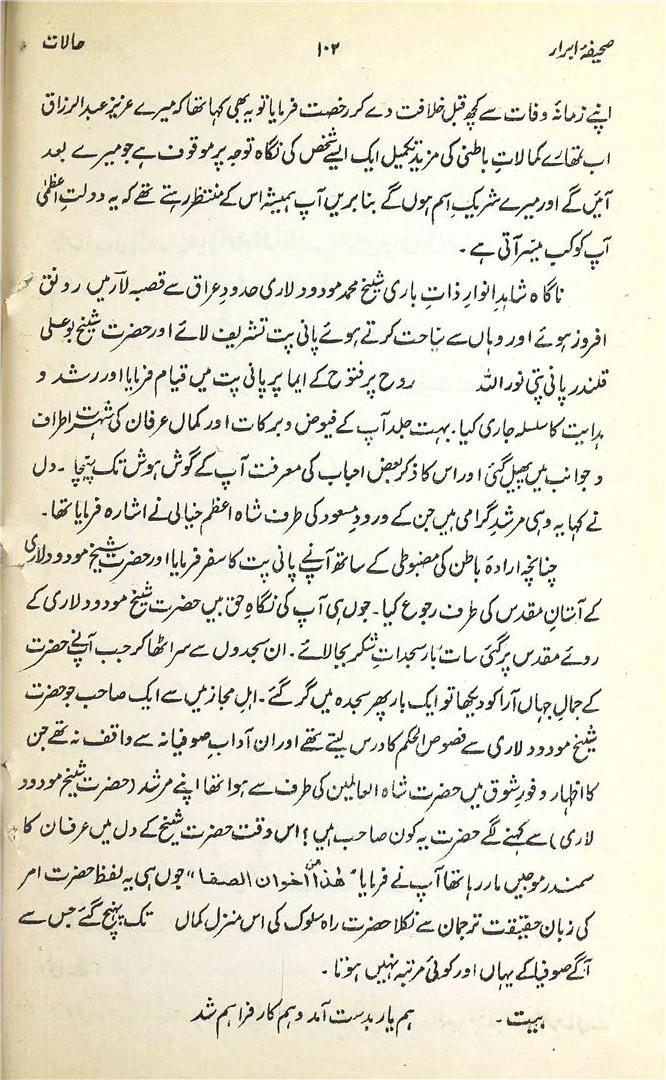 صحیفۂ ابرار ۱۰۲ حالات
اپنے زمانۂ وفات سے کچھ قبل خلافت دے کر رخصت فرمایا تو یہ بھی کہا تھا کہ میرے عزیز عبدالرزاق
اب تمھارے کمالاتِ باطنی کی مزید تکمیل ایک ایسے شخص کی نگاہ توجہ پر موقوف ہے جو میرے بعد
آئیں گے اور میرے شریکِ اسم ہوں گے بنا بریں آپ ہمیشہ اس کے منتظر رہتے تھے کہ یہ دولتِ عظمیٰ
آپ کو کب میسر آتی ہے ۔
ناگاہ شاہدِ انوارِ ذاتِ باری شیخ محمد مودود لاری حدودِ عراق سے قصبہ لآر میں رونق
افروز ہوئے اور وہاں سے سیاحت کرتے ہوئے پانی پت تشریف لائے اور حضرت شیخ بوعلی
قلندر پانی پتی نور اللہ روح پر فتوح کے ایما پر پانی پت میں قیام فرمایا اور رشد و
ہدایت کا سلسلہ جاری کیا ۔ بہت جلد آپ کے فیوض و برکات اور کمال عرفان کی شہرت اطراف
و جوانب میں پھیل گئی اور اس کا ذکر بعض احباب کی معرفت آپ کے گوش ہوش تک پہنچا ۔ دل
نے کہا یہ وہی مرشدِ گرامی ہیں جن کے ورودِ مسعود کی طرف شاہ اعظم خیالی نے اشارہ فرمایا تھا ۔
چنانچہ ارادۂ باطن کی مضبوطی کے ساتھ آپنے پانی پت کا سفر فرمایا اور حضرت شیخ مودود لاری
کے آستانِ مقدس کی طرف رجوع کیا ۔ جوں ہی آپ کی نگاہِ حق بیں حضرت شیخ مودود لاری کے
روئے مقدس پر گئی سات بار سجداتِ تشکر بجا لائے ۔ ان سجدوں سے سر اٹھا کر جب آپنے حضرت
کے جمالِ جہاں آرا کو دیکھا تو ایک بار پھر سجدہ میں گر گئے ۔ اہلِ مجاز میں سے ایک صاحب جو حضرت
شیخ مودود لاری سے فصوص الحکم کا درس لیتے تھے اور ان آدابِ صوفیانہ سے واقف نہ تھے جن
کا اظہار وفورِ شوق میں حضرت شاہ العالمین کی طرف سے ہوا تھا اپنے مرشد (حضرت شیخ مودود
لاری) سے کہنے لگے حضرت یہ کون صاحب ہیں؟ اس وقت حضرت شیخ کے دل میں عرفان کا
سمندر موجیں مار رہا تھا آپ نے فرمایا "ھٰذا من اخوان الصفا" جوں ہی یہ لفظ حضرت امر
کی زبانِ حقیقت ترجمان سے نکلا حضرت راہ سلوک کی اس منزل کمال تک پہنچ گئے جس سے
آگے صوفیا کے یہاں اور کوئی مرتبہ نہیں ہوتا ۔
بیت ۔ ہم یار بدست آمد و ہم کار فراہم شد